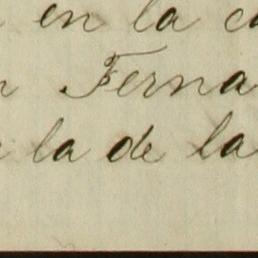 en la c
Ferna
la de la